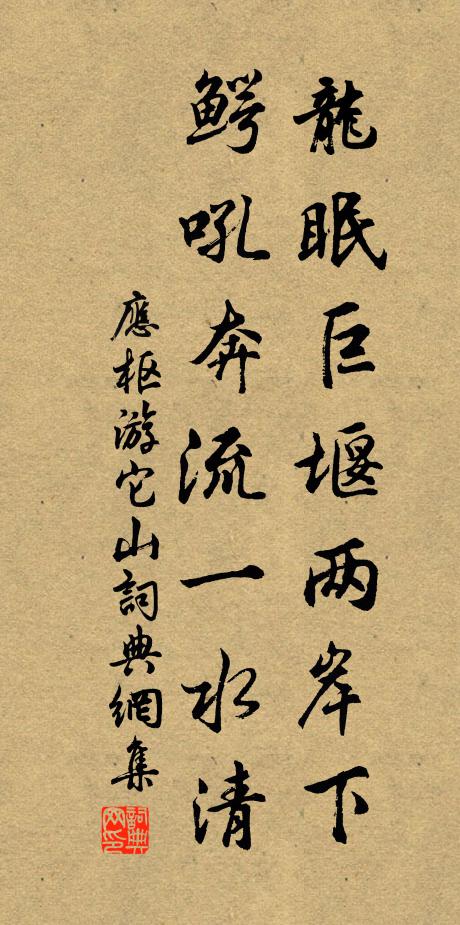 龍眠巨堰两岸下
鳄吼奔流一水清
應枢游它山詞典網集
詞典网印